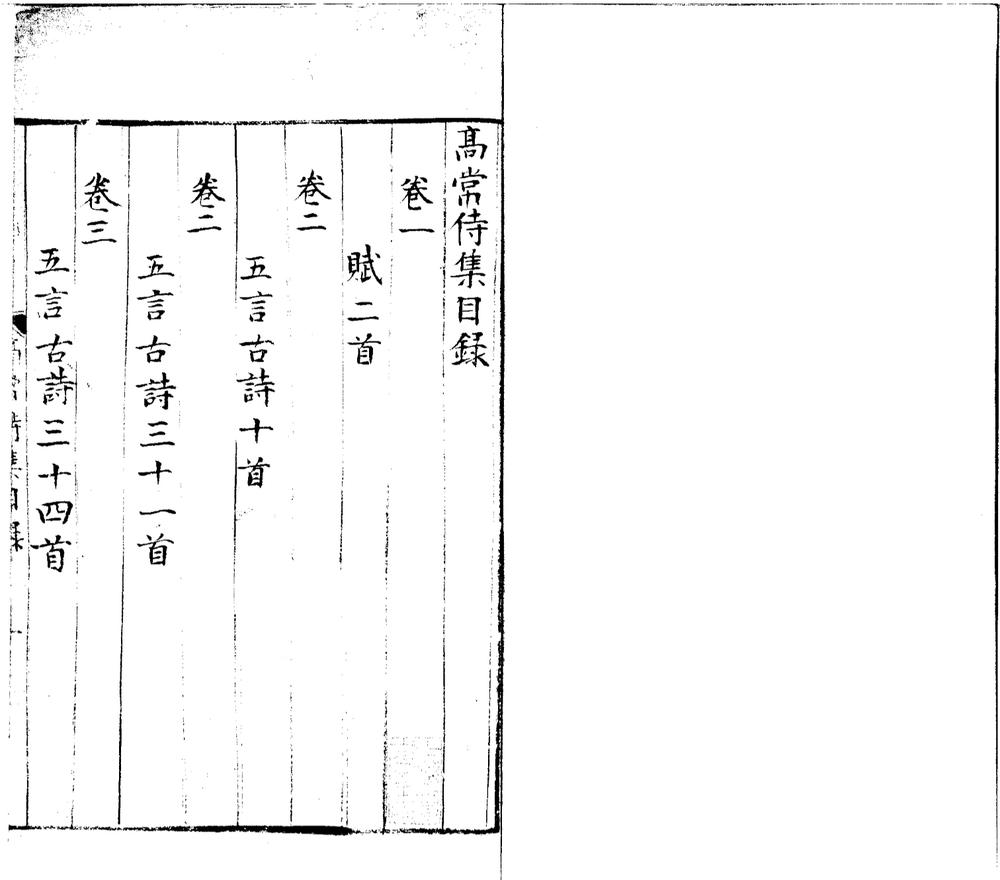 髙常侍集目録
卷一
賦二首
卷二
五言古詩十首
卷二
五言古詩三十一首
卷三
五言古詩三十四首
髙常侍集目録 一